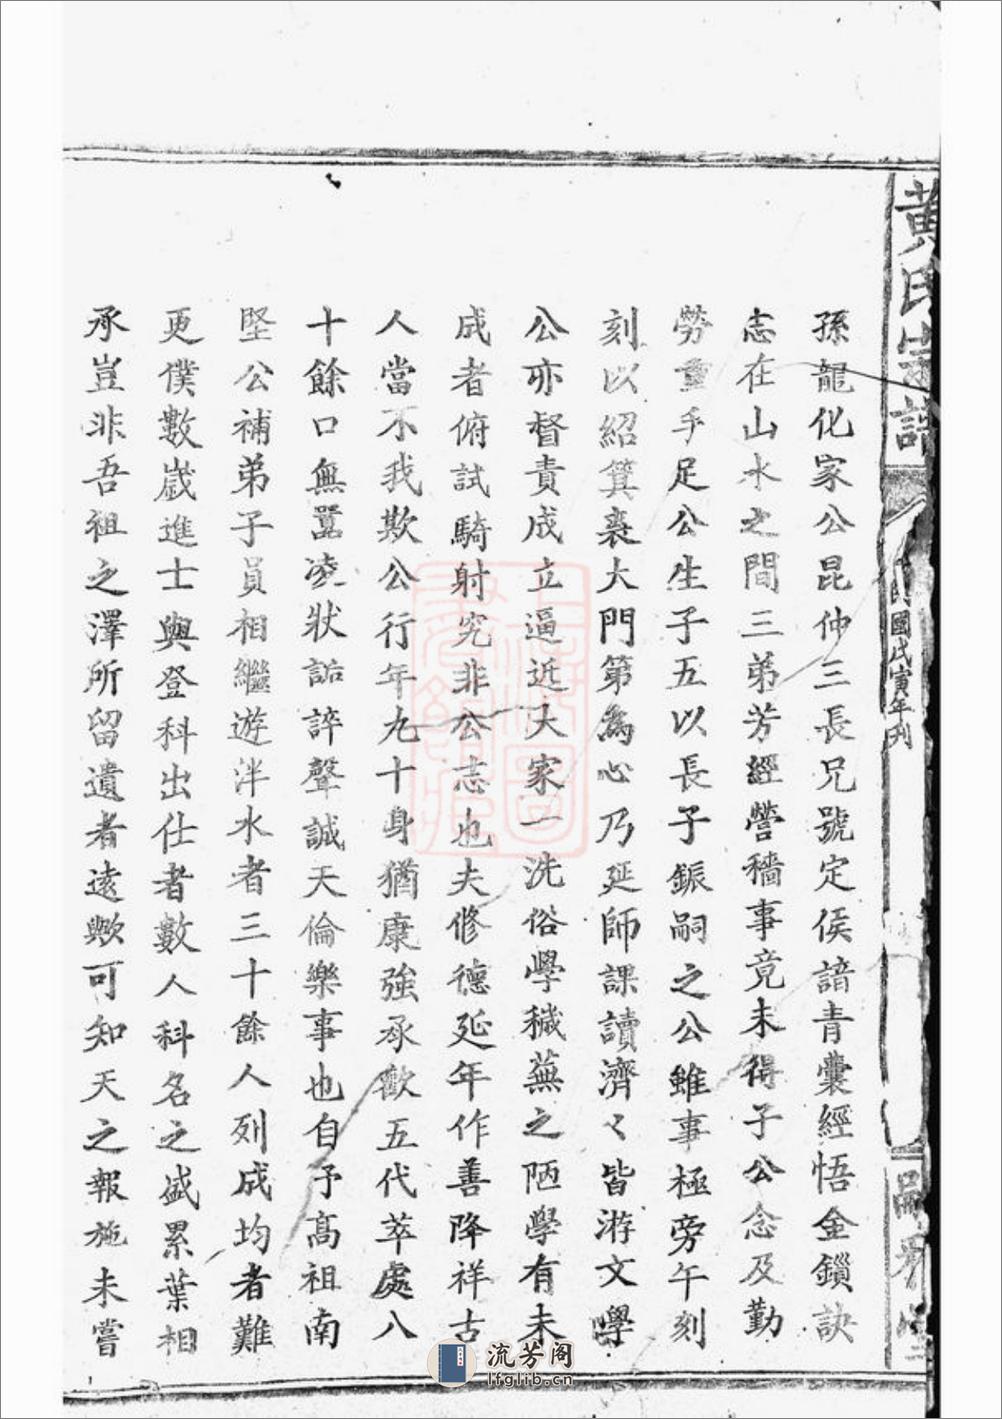 黃氏宗譜
民國戊寅年刊
孫龍化家公昆仲三長兄號定侯諳青囊經悟金鎖訣
志在山水之間三弟芳經營穡事竟未得子公念及勤
勞重手足公生子五以長子鋠嗣之公雖事極旁午刻
刻以紹箕裘大門第為心乃延師課讀濟〻皆游文學
公亦督責成立逼近大家一洗俗學穢蕪之陋學有未
成者俯試騎射究非公志也夫修德延年作善降祥古
人當不我欺公行年九十身猶康強承歡五代萃處八
十餘口無囂凌狀詬誶聲誠天倫樂事也自予高祖南
堅公補弟子員相繼遊泮水者三十餘人列成均者難
更僕數歲進士與登科出仕者數人科名之盛累葉相
承豈非吾祖之澤所留遺者遠歟可知天之報施未嘗
流芳阁
lfglib.cn